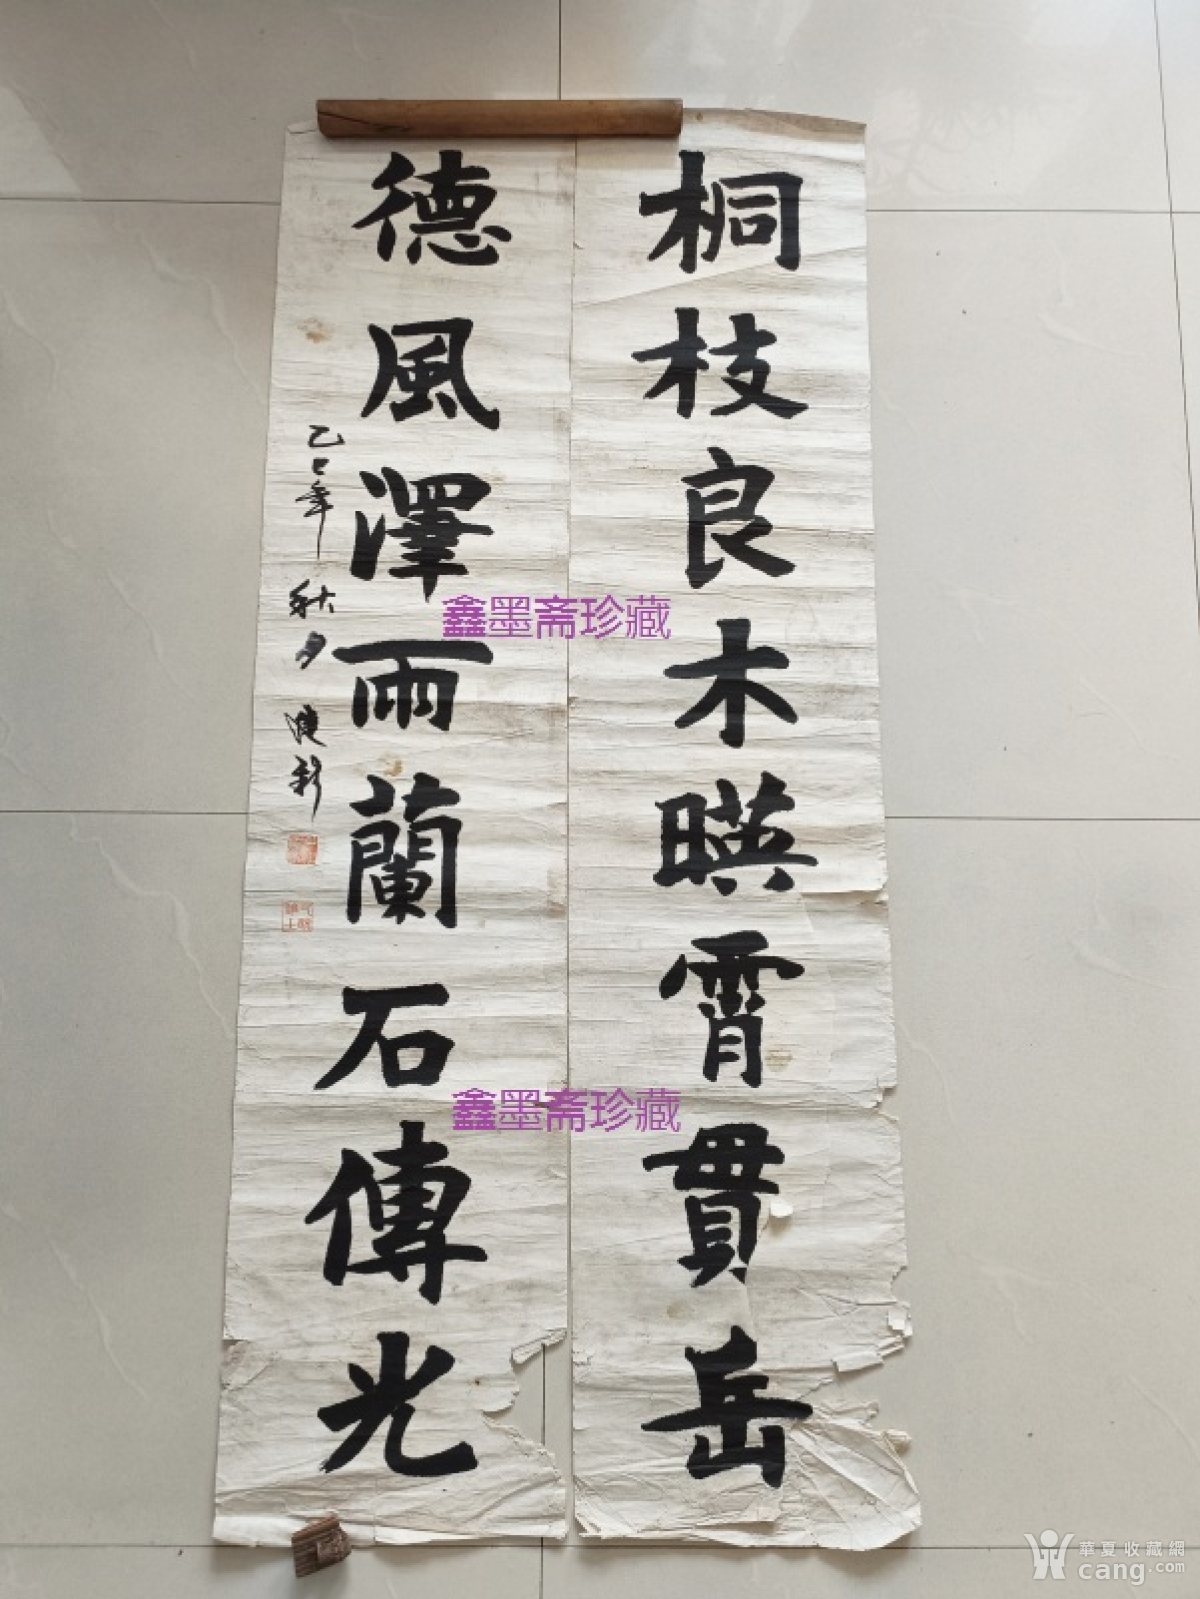 桐枝良木暎霄貫岳
德風澤雨蘭石傳光
乙巳年秋月
鑫墨斋珍藏
鑫墨斋珍藏
華夏收藏網
cang.com